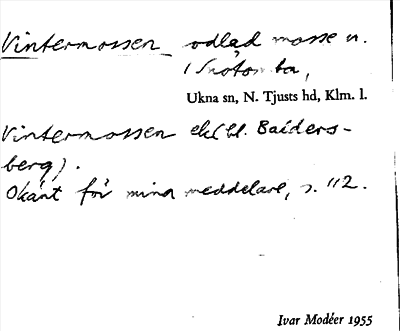 Vintermossen odlad mosse n.
i Snötomta,
Ukna sn, N. Tjusts hd, Klm. l.
Vintermossen ek (bl. Baiders-
berg).
Okänt för mina meddelare, s. 112.
Ivar Modéer 1955